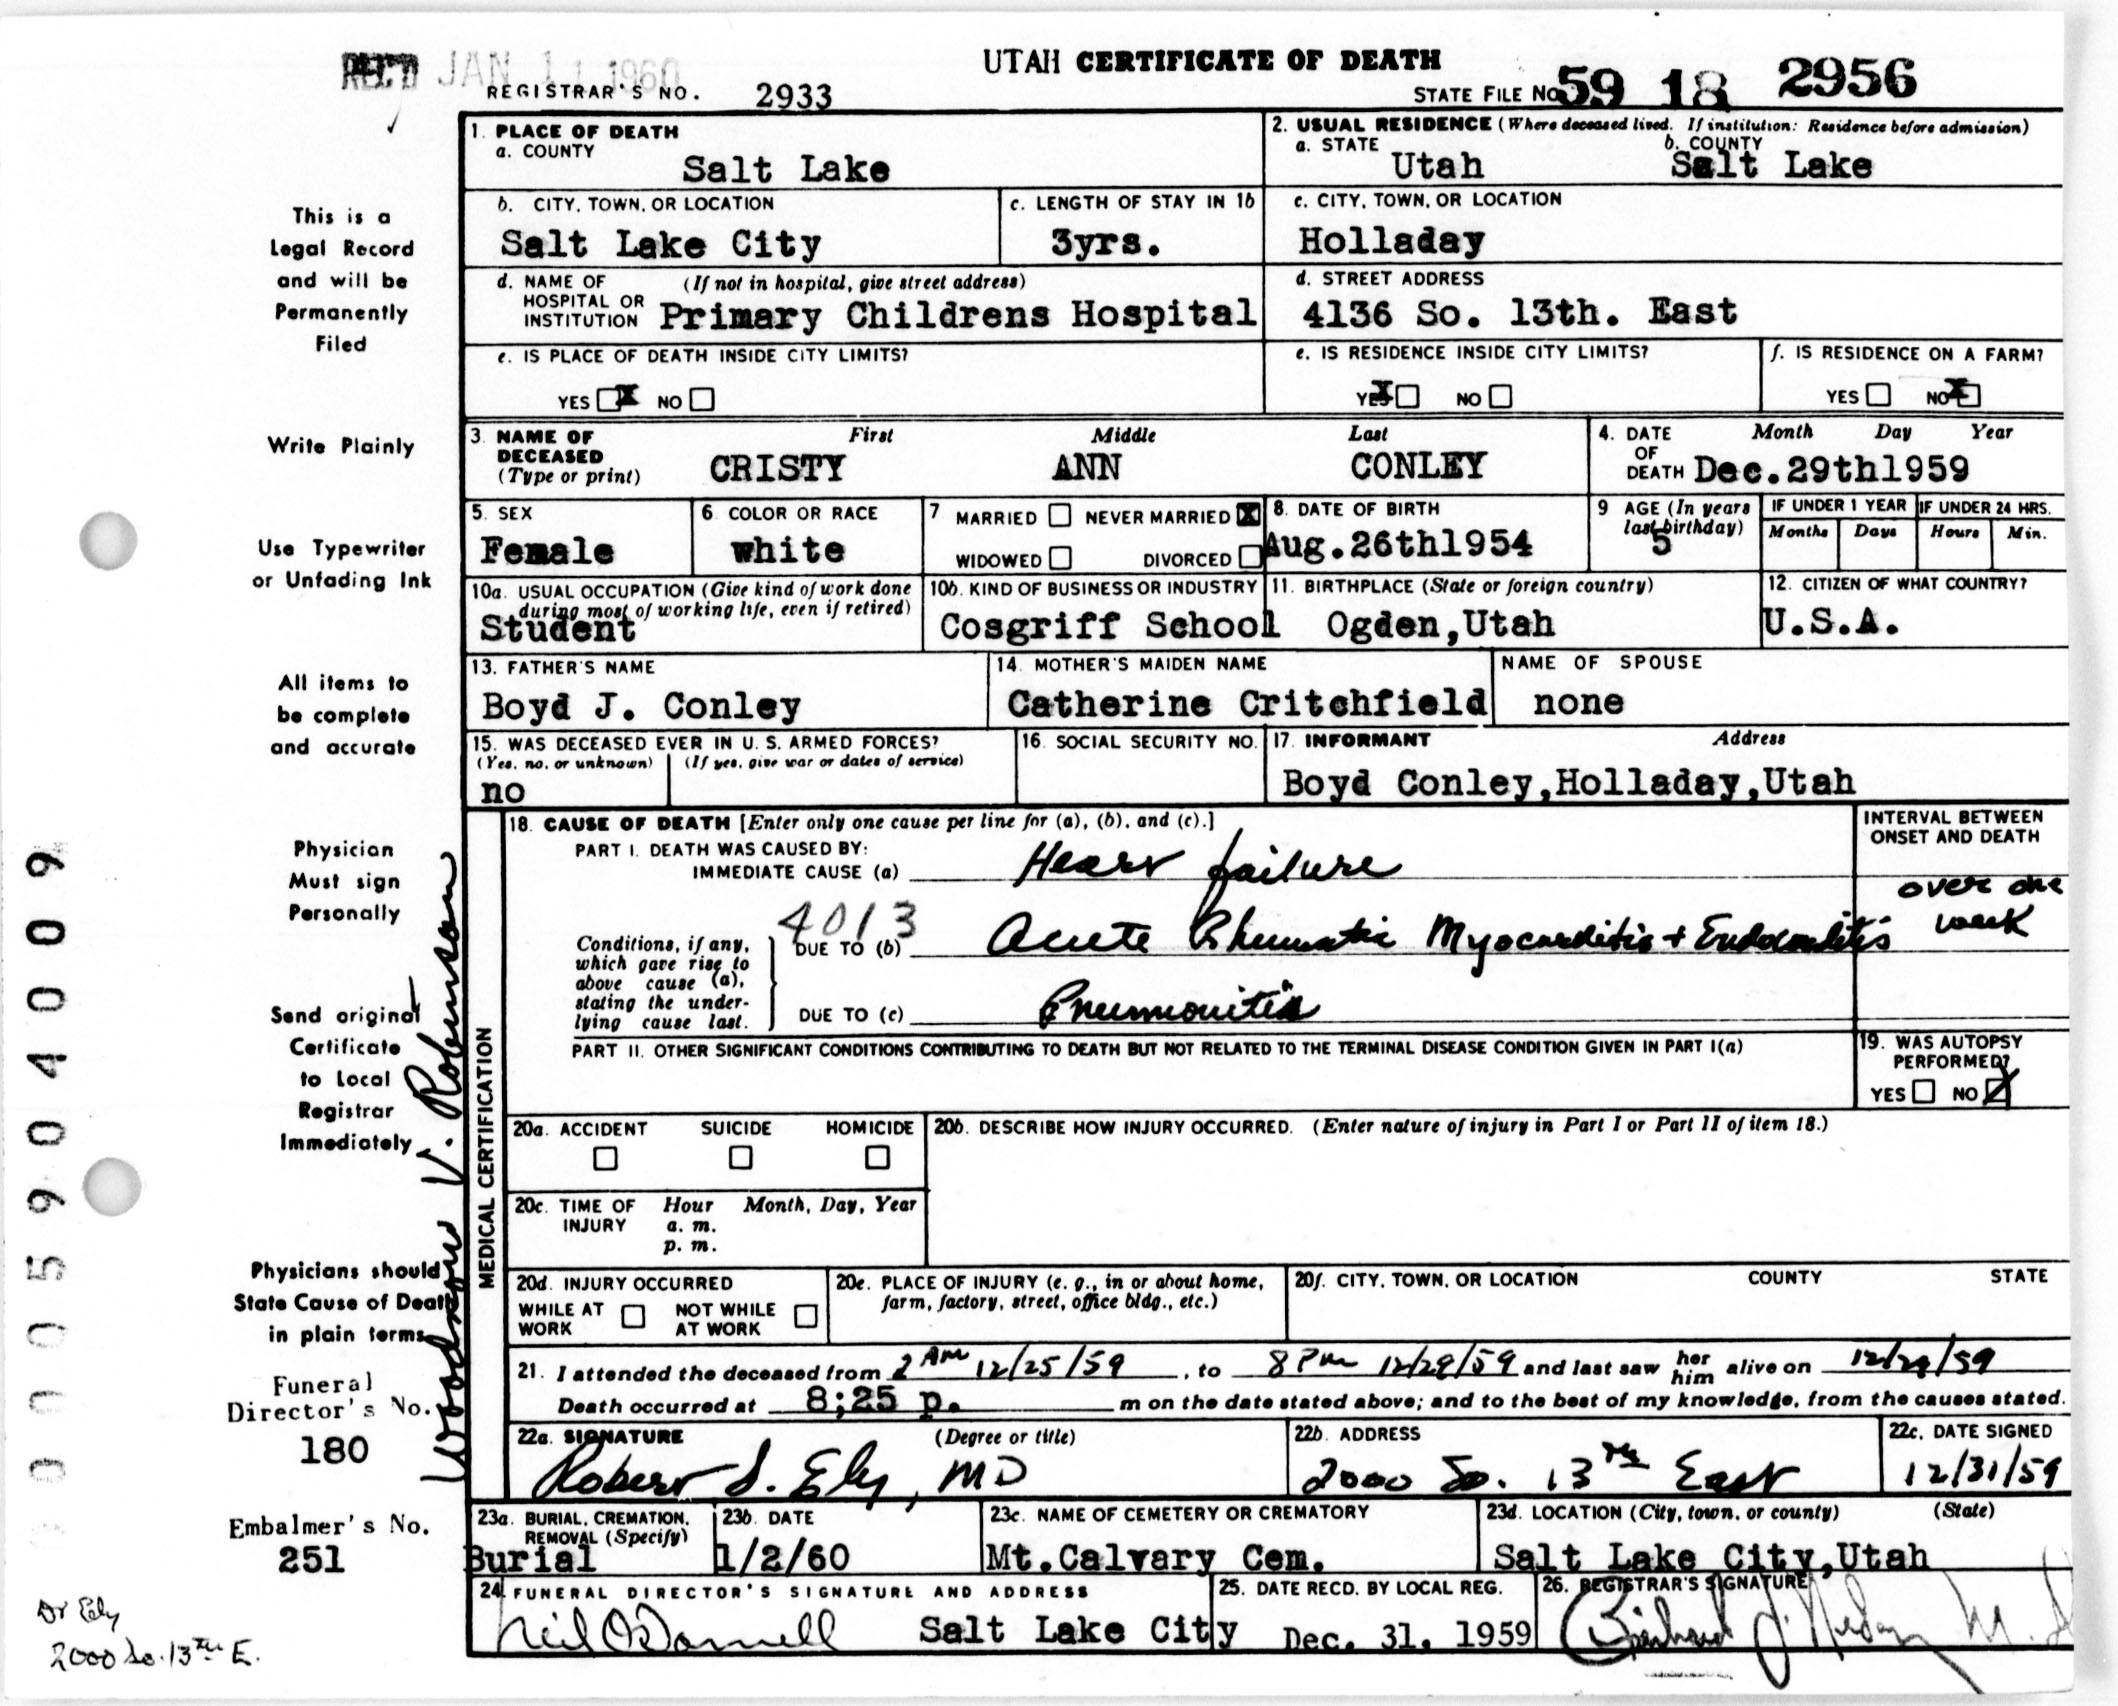 REC'D JAN 11 1960
UTAH CERTIFICATE OF DEATH
REGISTRAR'S NO. 2933
STATE FILE NO. 59 18 2956
1. PLACE OF DEATH
a. COUNTY
Salt Lake
2. USUAL RESIDENCE (Where deceased lived. If institution: Residence before admission)
a. STATE b. COUNTY
Utah Salt Lake
b. CITY, TOWN, OR LOCATION
Salt Lake City
c. LENGTH OF STAY IN 1b
3yrs.
c. CITY, TOWN, OR LOCATION
Holladay
d. NAME OF HOSPITAL OR INSTITUTION (If not in hospital, give street address)
Primary Childrens Hospital
d. STREET ADDRESS
4136 So. 13th. East
e. IS PLACE OF DEATH INSIDE CITY LIMITS?
YES X NO
e. IS RESIDENCE INSIDE CITY LIMITS?
YES X NO
f. IS RESIDENCE ON A FARM?
YES NO X
3. NAME OF DECEASED (Type or print)
First Middle Last
CRISTY ANN CONLEY
4. DATE OF DEATH Month Day Year
Dec.29th1959
5. SEX
Female
6. COLOR OR RACE
white
7 MARRIED NEVER MARRIED X
WIDOWED DIVORCED
8. DATE OF BIRTH
Aug.26th1954
9 AGE (In years last birthday)
5
IF UNDER 1 YEAR IF UNDER 24 HRS.
Months Days Hours Min.
10a. USUAL OCCUPATION (Give kind of work done during most of working life, even if retired)
Student
10b. KIND OF BUSINESS OR INDUSTRY
Cosgriff School
11. BIRTHPLACE (State or foreign country)
Ogden,Utah
12. CITIZEN OF WHAT COUNTRY?
U.S.A.
13. FATHER'S NAME
Boyd J. Conley
14. MOTHER'S MAIDEN NAME
Catherine Critchfield
NAME OF SPOUSE
none
15. WAS DECEASED EVER IN U. S. ARMED FORCES?
(Yes, no, or unknown) (If yes, give war or dates of service)
no
16. SOCIAL SECURITY NO.
17. INFORMANT Address
Boyd Conley,Holladay,Utah
MEDICAL CERTIFICATION
18. CAUSE OF DEATH [Enter only one cause per line for (a), (b), and (c).]
PART I. DEATH WAS CAUSED BY:
IMMEDIATE CAUSE (a) Heart failure
INTERVAL BETWEEN ONSET AND DEATH
over one week
4013
Conditions, if any, which gave rise to above cause (a), stating the underlying cause last.
DUE TO (b) Acute Rheumatic Myocarditis + Endocarditis
DUE TO (c) Pneumonitis
PART II. OTHER SIGNIFICANT CONDITIONS CONTRIBUTING TO DEATH BUT NOT RELATED TO THE TERMINAL DISEASE CONDITION GIVEN IN PART I(a)
19. WAS AUTOPSY PERFORMED?
YES NO X
20a. ACCIDENT SUICIDE HOMICIDE
20b. DESCRIBE HOW INJURY OCCURRED. (Enter nature of injury in Part I or Part II of item 18.)
20c. TIME OF INJURY Hour Month, Day, Year
a. m.
p. m.
20d. INJURY OCCURRED
WHILE AT WORK NOT WHILE AT WORK
20e. PLACE OF INJURY (e. g., in or about home, farm, factory, street, office bldg., etc.)
20f. CITY, TOWN, OR LOCATION COUNTY STATE
21. I attended the deceased from 2 AM 12/25/59, to 8 PM 12/29/59 and last saw her him alive on 12/29/59
Death occurred at 8;25 p. m on the date stated above; and to the best of my knowledge, from the causes stated.
22a. SIGNATURE (Degree or title)
Robert S. Ely, MD
22b. ADDRESS
2000 So. 13th East
22c. DATE SIGNED
12/31/59
23a. BURIAL, CREMATION, REMOVAL (Specify)
Burial
23b. DATE
1/2/60
23c. NAME OF CEMETERY OR CREMATORY
Mt.Calvary Cem.
23d. LOCATION (City, town, or county) (State)
Salt Lake City,Utah
24 FUNERAL DIRECTOR'S SIGNATURE AND ADDRESS
Neil O'Donnell Salt Lake City
25. DATE RECD. BY LOCAL REG.
Dec. 31, 1959
26. REGISTRAR'S SIGNATURE
This is a
Legal Record
and will be
Permanently
Filed
Write Plainly
Use Typewriter
or Unfading Ink
All items to
be complete
and accurate
Physician
Must sign
Personally
Send original
Certificate
to Local
Registrar
Immediately
Physicians should
State Cause of Death
in plain terms
Funeral
Director's No.
180
Embalmer's No.
251
Woodrow V. Robinson
0005904009
Dr Ely
2000 So. 13th E.